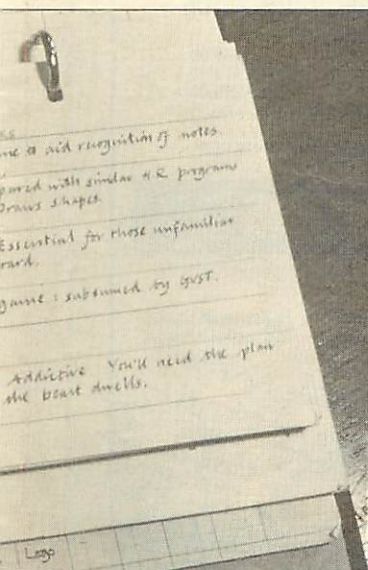 ks
me to aid recognition of notes.
pared with similar 48 programs
Draws shapes
Essential for those unfamiliar
oard.
game : subsumed by GVST.
Addictive You'll need the plan
the beast dwells.
Logo